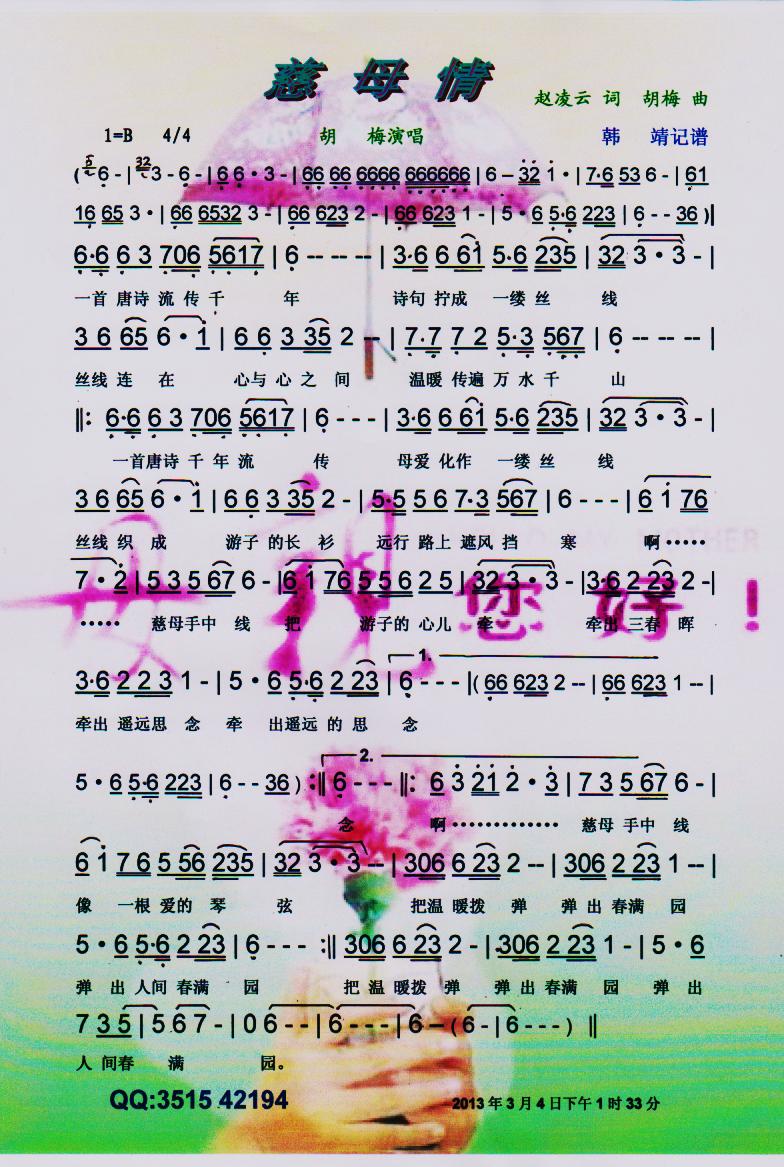 慈母情
赵凌云 词 胡梅 曲
1=B 4/4 胡 梅演唱 韩 靖记谱
( 6 - | 32 3 - 6 - | 6 6 · 3 - | 66 66 6666 666666 | 6 – 32 1 · | 7·6 53 6 - | 61
16 65 3 · | 66 6532 3 - | 66 623 2 - | 66 623 1 - | 5 · 6 5·6 223 | 6 - - 36 )|
6·6 6 3 706 5617 | 6 - - - - | 3·6 6 61 5·6 235 | 32 3 · 3 - |
一首 唐诗 流 传 千 年 诗句 拧成 一缕 丝 线
3 6 65 6 · 1 | 6 6 3 35 2 -- | 7·7 7 2 5·3 567 | 6 -- -- |
丝线 连 在 心与 心 之 间 温暖 传遍 万 水 千 山
||: 6·6 6 3 706 5617 | 6 - - - | 3·6 6 61 5·6 235 | 32 3 · 3 - |
一首唐诗 千 年 流 传 母爱 化作 一缕 丝 线
3 6 65 6 · 1 | 6 6 3 35 2 - | 5·5 5 6 7·3 567 | 6 - - - | 6 1 76
丝线 织 成 游子 的长 衫 远行 路上 遮风 挡 寒 啊 ······
MOTHER
7 · 2 | 5 3 5 67 6 - | 6 1 76 5 5 6 2 5 | 32 3 · 3 - | 3·6 2 23 2 - |
····· 慈母手中 线 把 游子的 心儿 牵 牵出 三春 晖
母亲您好!
1.
3·6 2 2 3 1 - | 5 · 6 5·6 2 23 | 6 - - - |( 66 623 2 -- | 66 623 1 -- |
牵出 遥远思 念 牵 出遥远 的 思 念
2.
5 · 6 5·6 223 | 6 - - 36 ) :|| 6 - - - ||: 6 3 21 2 · 3 | 7 3 5 67 6 - |
念 啊 ·············· 慈母 手中 线
6 1 7 6 5 56 235 | 32 3 · 3 -- | 306 6 23 2 -- | 306 2 23 1 -- |
像 一根 爱的 琴 弦 把温 暖拨 弹 弹 出 春满 园
5 · 6 5·6 2 23 | 6 - - - :|| 306 6 23 2 - | 306 2 23 1 - | 5 · 6
弹 出 人间 春满 园 把 温 暖拨 弹 弹 出 春满 园 弹 出
7 35 | 5 6 7 - | 0 6 - - | 6 - - - | 6 – ( 6 - | 6 - - - ) ||
人 间春 满 园。
QQ:3515 42194 2013 年 3 月 4 日下午 1 时 33 分